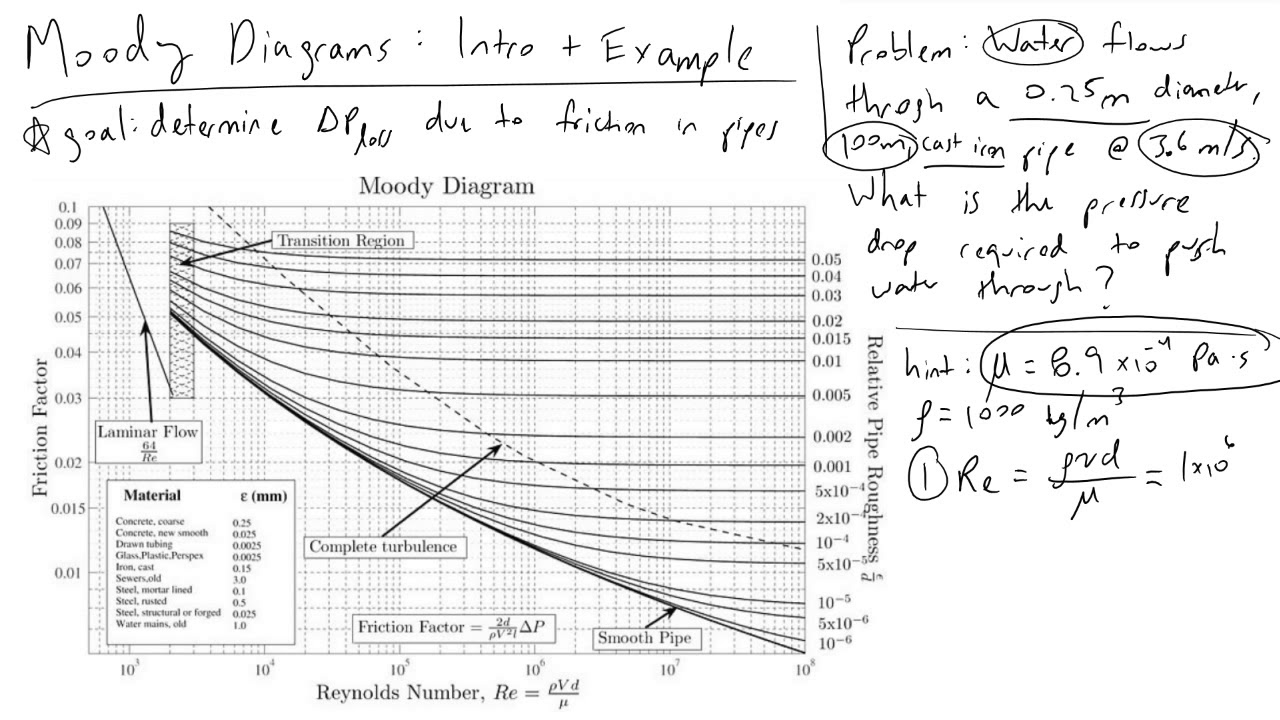 Moody Diagrams: Intro + Example
☆ goal: determine ΔP_loss due to friction in pipes
Problem: Water flows
throgh a 0.25m diameter,
100m, cast iron pipe @ 3.6 m/s.
What is the pressure
drop required to push
water through?
hint: μ = 8.9 ×10^-4 Pa·s
ρ = 1000 kg/m^3
① Re = ρvd/μ = 1×10^6
Moody Diagram
Friction Factor
0.1
0.09
0.08
0.07
0.06
0.05
0.04
0.03
0.02
0.015
0.01
Transition Region
Laminar Flow
64/Re
Complete turbulence
Smooth Pipe
Friction Factor = 2d/ρV²l ΔP
Material ε (mm)
Concrete, coarse 0.25
Concrete, new smooth 0.025
Drawn tubing 0.0025
Glass,Plastic,Perspex 0.0025
Iron, cast 0.15
Sewers,old 3.0
Steel, mortar lined 0.1
Steel, rusted 0.5
Steel, structural or forged 0.025
Water mains, old 1.0
0.05
0.04
0.03
0.02
0.015
0.01
0.005
0.002
0.001
5x10^-4
2x10^-4
10^-4
5x10^-5
10^-5
5x10^-6
10^-6
Relative Pipe Roughness ε/d
10^3 10^4 10^5 10^6 10^7 10^8
Reynolds Number, Re = ρVd/μ